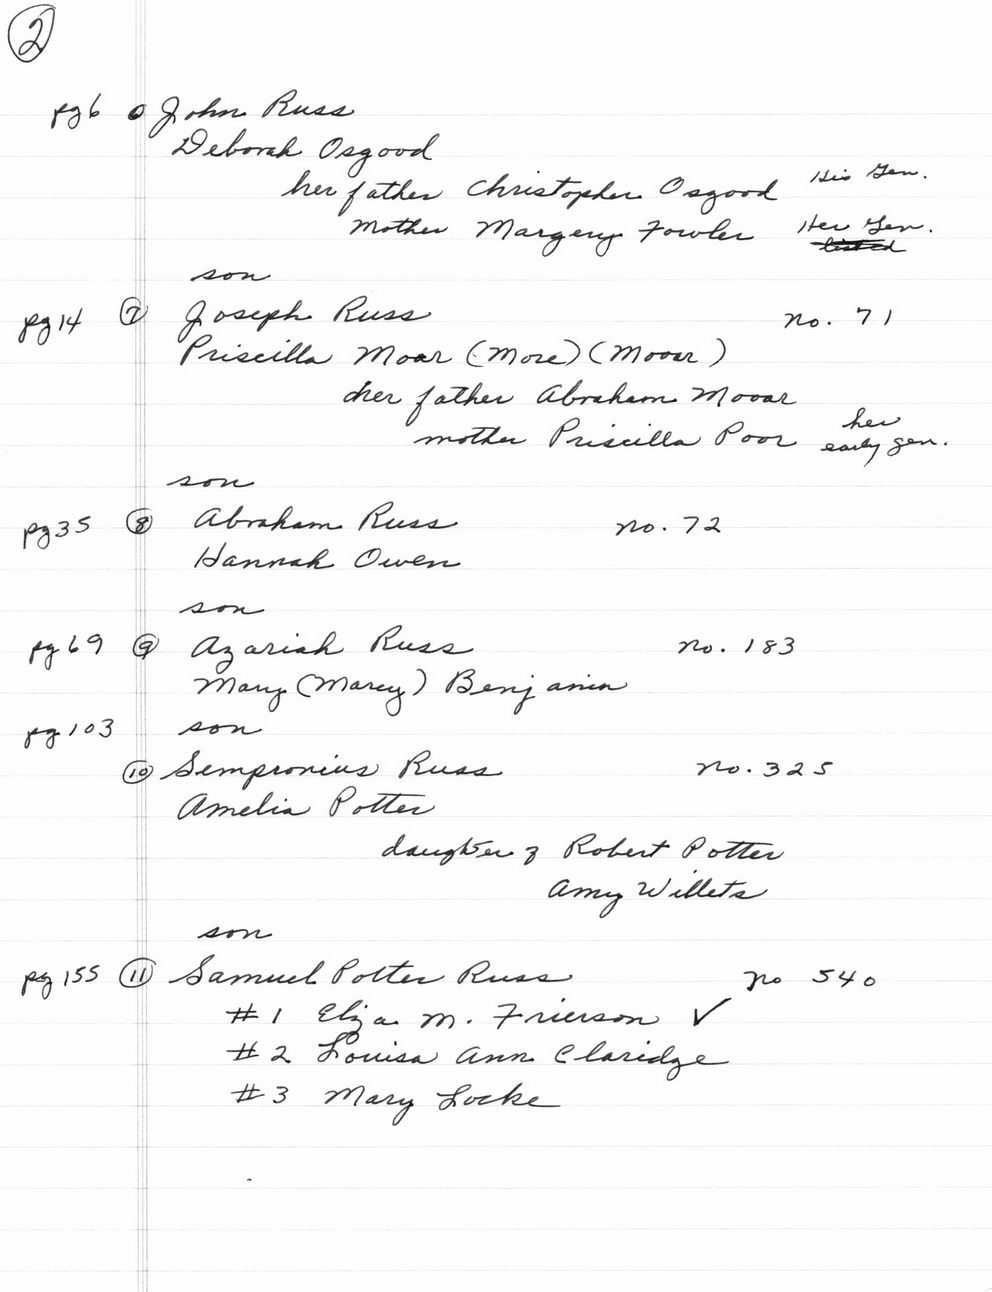 2
pg 6 John Russ
Deborah Osgood
her father Christopher Osgood His Gen.
mother Margery Fowler Her Gen.
listed
son
pg 14 7 Joseph Russ no. 71
Priscilla Moar (More) (Mooar)
her father Abraham Mooar
mother Priscilla Poor her early gen.
son
pg 35 8 Abraham Russ no. 72
Hannah Owen
son
pg 69 9 Azariah Russ no. 183
Mary (Marcy) Benjamin
pg 103 son
10 Sempronius Russ no. 325
Amelia Potter
daughter of Robert Potter
Amy Willets
son
pg 155 11 Samuel Potter Russ no 540
#1 Eliza M. Frierson ✓
#2 Louisa Ann Claridge
#3 Mary Locke